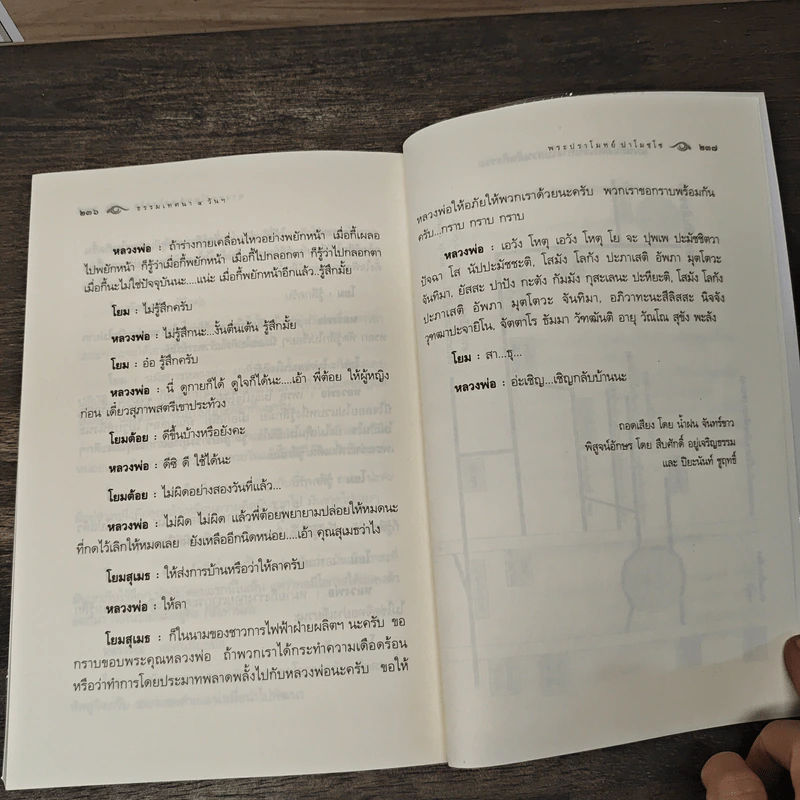 ๒๓๖ ธรรมเทศนา ๔ วันฯ
หลวงพ่อ : ถ้าร่างกายเคลื่อนไหวอย่างพยักหน้า เมื่อกี้เผลอ
ไปพยักหน้า ก็รู้ว่าเมื่อกี้พยักหน้า เมื่อกี้ไปกลอกตา ก็รู้ว่าไปกลอกตา
เมื่อกี้นะไม่ใช่ปัจจุบันนะ....แน่ะ เมื่อกี้พยักหน้าอีกแล้ว..รู้สึกมั้ย
โยม : ไม่รู้สึกครับ
หลวงพ่อ : ไม่รู้สึกนะ...งั้นตื่นเต้น รู้สึกมั้ย
โยม : อ๋อ รู้สึกครับ
หลวงพ่อ : นี่ ดูกายก็ได้ ดูใจก็ได้นะ....เอ้า พี่ต้อย ให้ผู้หญิง
ก่อน เดี๋ยวสุภาพสตรีเขาประท้วง
โยมต้อย : ดีขึ้นบ้างหรือยังคะ
หลวงพ่อ : ดีซิ ดี ใช้ได้นะ
โยมต้อย : ไม่ผิดอย่างสองวันที่แล้ว...
หลวงพ่อ : ไม่ผิด ไม่ผิด แล้วพี่ต้อยพยายามปล่อยให้หมดนะ
ที่กดไว้เลิกให้หมดเลย ยังเหลืออีกนิดหน่อย....เอ้า คุณสุเมธว่าไง
โยมสุเมธ : ให้ส่งการบ้านหรือว่าให้ลาครับ
หลวงพ่อ : ให้ลา
โยมสุเมธ : ก็ในนามของชาวการไฟฟ้าฝ่ายผลิตฯ นะครับ ขอ
กราบขอบพระคุณหลวงพ่อ ถ้าพวกเราได้กระทำความเดือดร้อน
หรือว่าทำการโดยประมาทพลาดพลั้งไปกับหลวงพ่อนะครับ ขอให้
พระปราโมทย์ ปาโมชฺโช ๒๓๗
หลวงพ่อให้อภัยให้พวกเราด้วยนะครับ พวกเราขอกราบพร้อมกัน
ครับ...กราบ กราบ กราบ
หลวงพ่อ : เอวัง โหตุ เอวัง โหตุ โย จะ ปุพเพ ปะมัชชิตวา
ปัจฉา โส นัปปะมัชชะติ, โสมัง โลกัง ปะภาเสติ อัพภา มุตโตวะ
จันทิมา, ยัสสะ ปาปัง กะตัง กัมมัง กุสะเลนะ ปะหียะติ, โสมัง โลกัง
ปะภาเสติ อัพภา มุตโตวะ จันทิมา, อภิวาทะนะสีลิสสะ นิจจัง
วุฑฒาปะจายิโน, จัตตาโร ธัมมา วัฑฒันติ อายุ วัณโณ สุขัง พะลัง
โยม : สา...ธุ...
หลวงพ่อ : อ่ะเชิญ...เชิญกลับบ้านนะ
ถอดเสียง โดย น้ำฝน จันทร์ขาว
พิสูจน์อักษร โดย สืบศักดิ์ อยู่เจริญธรรม
และ ปิยะนันท์ ชูฤทธิ์